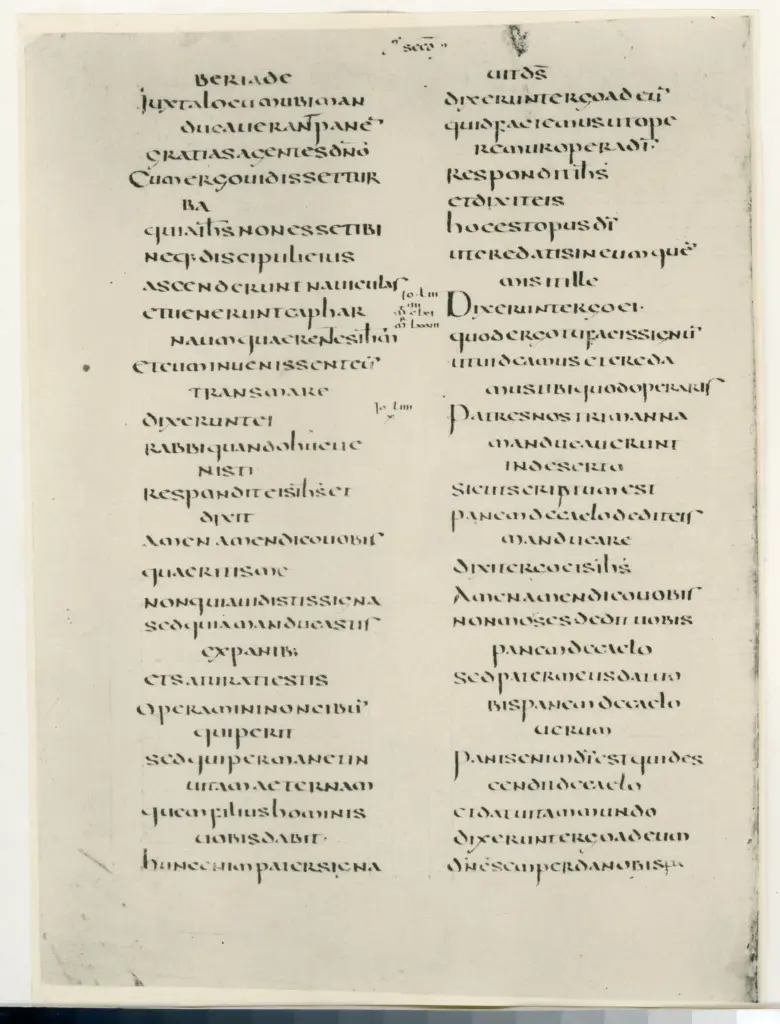 secd̄
BERIADE
IUXTALOCUMUBIMAN
DUCAUERANTPANĒ
GRATIASAGENTESDN̄O
CUMERGOUIDISSETTUR
BA
QUIAIH̄SNONESSETIBI
NEQ·DISCIPULIEIUS
ASCENDERUNTNAUICULAS
ETUENERUNTCAPHAR
NAUMQUAERENTESIH̄M
ETCUMINUENISSENTEŪ
TRANSMARE
DIXERUNTEI
RABBIQUANDOHUCUE
NISTI
RESPONDITEISIH̄SET
DIXIT
AMENAMENDICOUOBIS
QUAERITISME
NONQUIAUIDISTISSIGNA
SEDQUIAMANDUCASTIS
EXPANIB;
ETSATURATIESTIS
OPERAMININONCIBŪ
QUIPERIT
SEDQUIPERMANETIN
UITAMAETERNAM
QUEMFILIUSHOMINIS
UOBISDABIT·
HUNCENIMPATERSIGNA
UITDS̄
DIXERUNTERGOADEŪ
QUIDFACIEMUSUTOPE
REMUROPERADĪ·
RESPONDITIH̄S
ETDIXITEIS
HOCESTOPUSDĪ
UTCREDATISINEUMQUĒ
MISITILLE
DIXERUNTERGOEI·
QUODERGOTUFACISSIGNŪ
UTUIDEAMUSETCREDA
MUSTIBIQUODOPERARIS
PATRESNOSTRIMANNA
MANDUCAUERUNT
INDESERTO
SICUTSCRIPTUMEST
PANEMDECAELODEDITEIS
MANDUCARE
DIXITERGOEISIH̄S
AMENAMENDICOUOBIS
NONMOSESDEDITUOBIS
PANEMDECAELO
SEDPATERMEUSDATUO
BISPANEMDECAELO
UERUM
PANISENIMDĪESTQUIDES
CENDITDECAELO
ETDATUITAMMUNDO
DIXERUNTERGOADEUM
DN̄ESEMPERDANOBIS